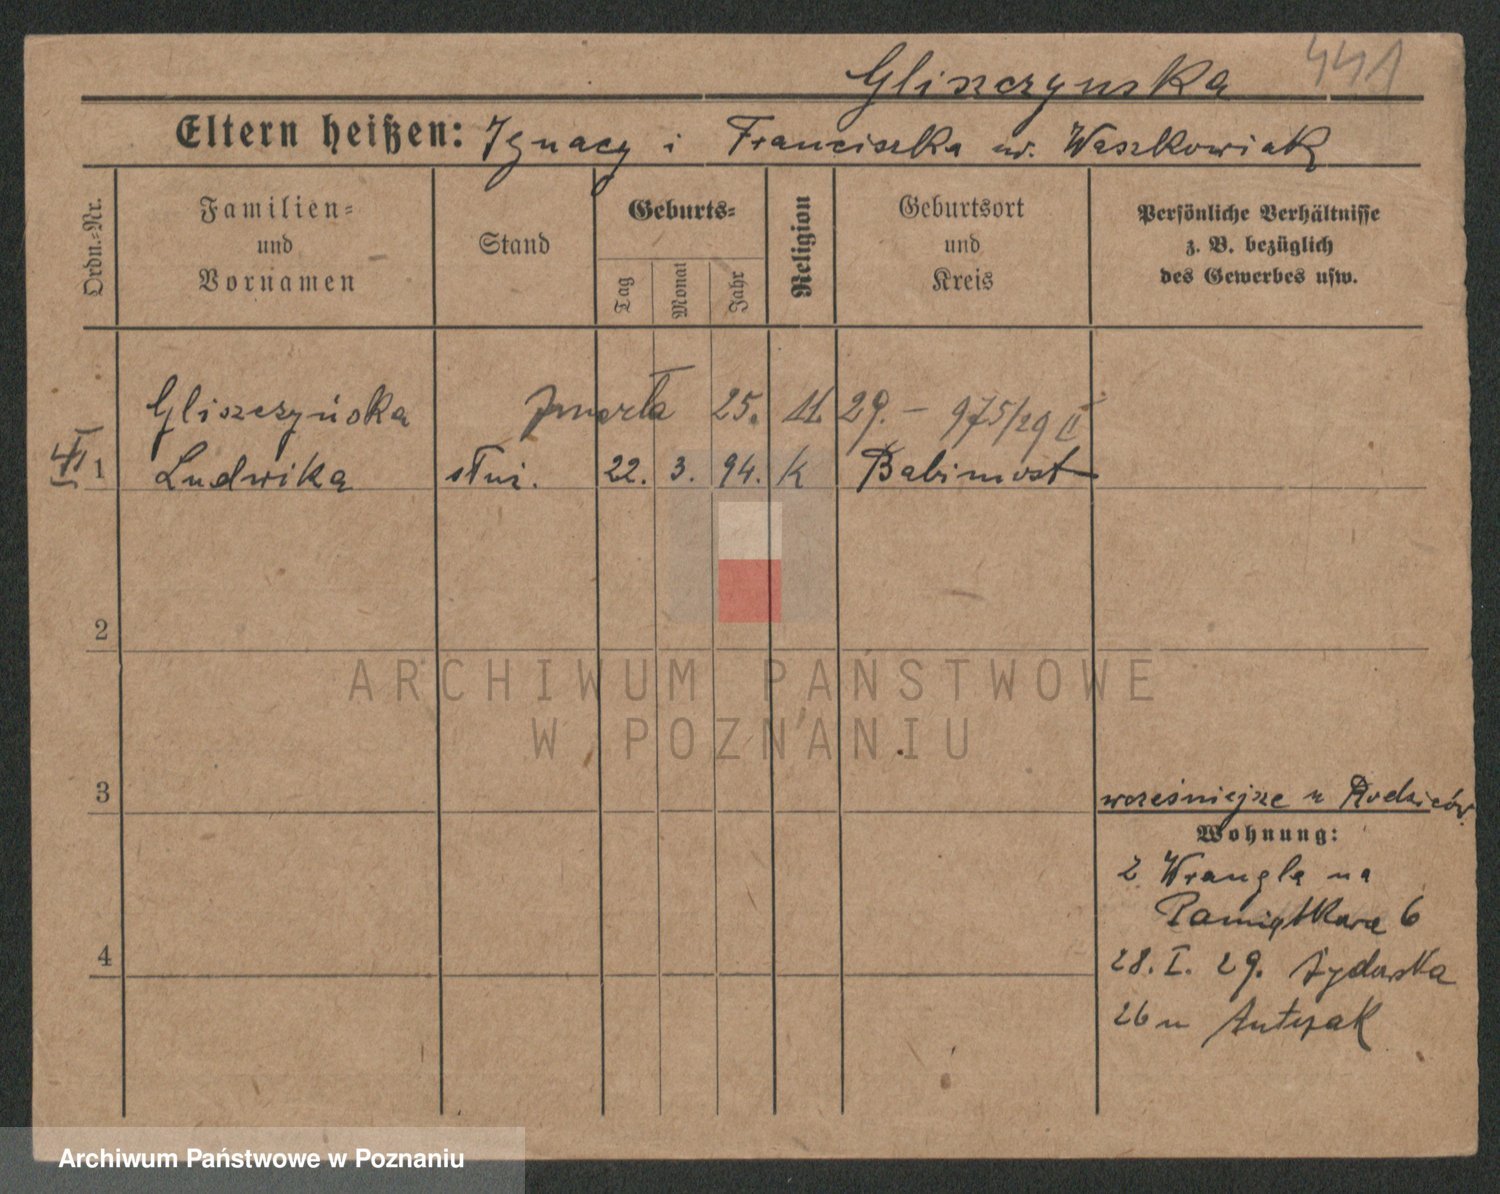 Gliszczynska 441
Eltern heißen: Ignacy i Franciszka ur. Waszkowiak
Ordn.-Nr.
Familien-
und
Vornamen
Stand
Geburts-
Tag
Monat
Jahr
Religion
Geburtsort
und
Kreis
Persönliche Verhältnisse
z. B. bezüglich
des Gewerbes usw.
Gliszczyńska zmarła 25. 11. 29. – 975/29 II
1 Ludwika służ. 22. 3. 94. K Babimost
2
ARCHIWUM PAŃSTWOWE
W POZNANIU
3
wcześniejsze u Rodziców
Wohnung:
z Wrangla na
Pamiątkowa 6
4
28. I. 29. Żydowska
26 u Antczak
Archiwum Państwowe w Poznaniu